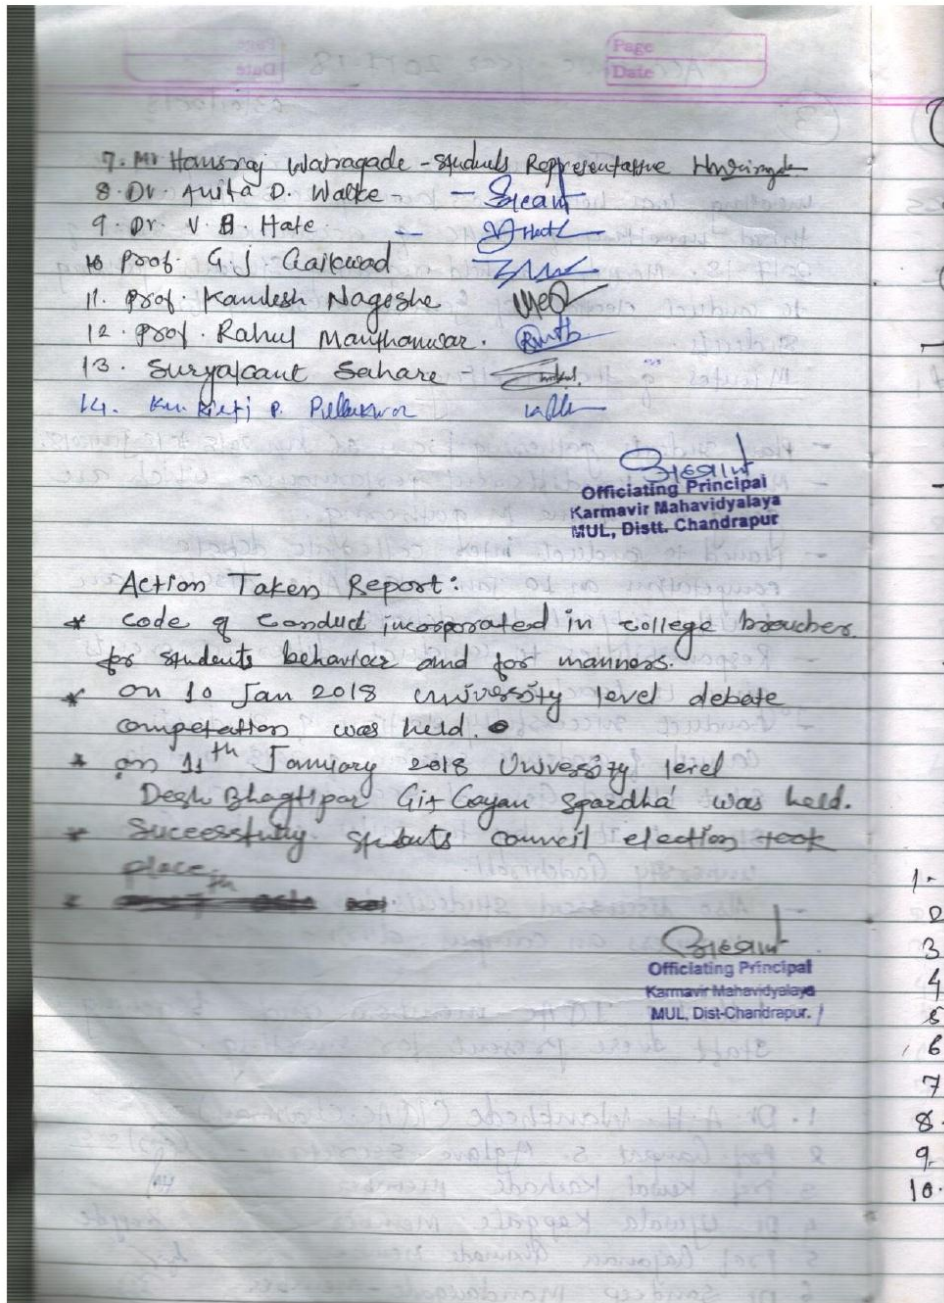 Page
Date
7. Mr Hansraj Waragade - Students Representative
8. Dr. Anita D. Walke -
9. Dr. V. B Hate -
10 Prof. G. J Gaikwad
11. Prof. Kamlesh Nagoshe
12. Prof. Rahul Manthanwar.
13. Suryakant Sahare
14. Ku. P.
Officiating Principal
Karmavir Mahavidyalaya
MUL, Distt. Chandrapur
Action Taken Report:
* Code of Conduct incorporated in college broucher
for students behaviour and for manners.
* on 10 Jan 2018 University level debate
competation was held.
* on 11th January 2018 University level
Desh Bhaghpar Git Gayan Spardha was held.
* Successfully students council election took
place
Officiating Principal
Karmavir Mahavidyalaya
MUL, Dist-Chandrapur.
1.
2
3
4
5
6
7
8.
9.
10.